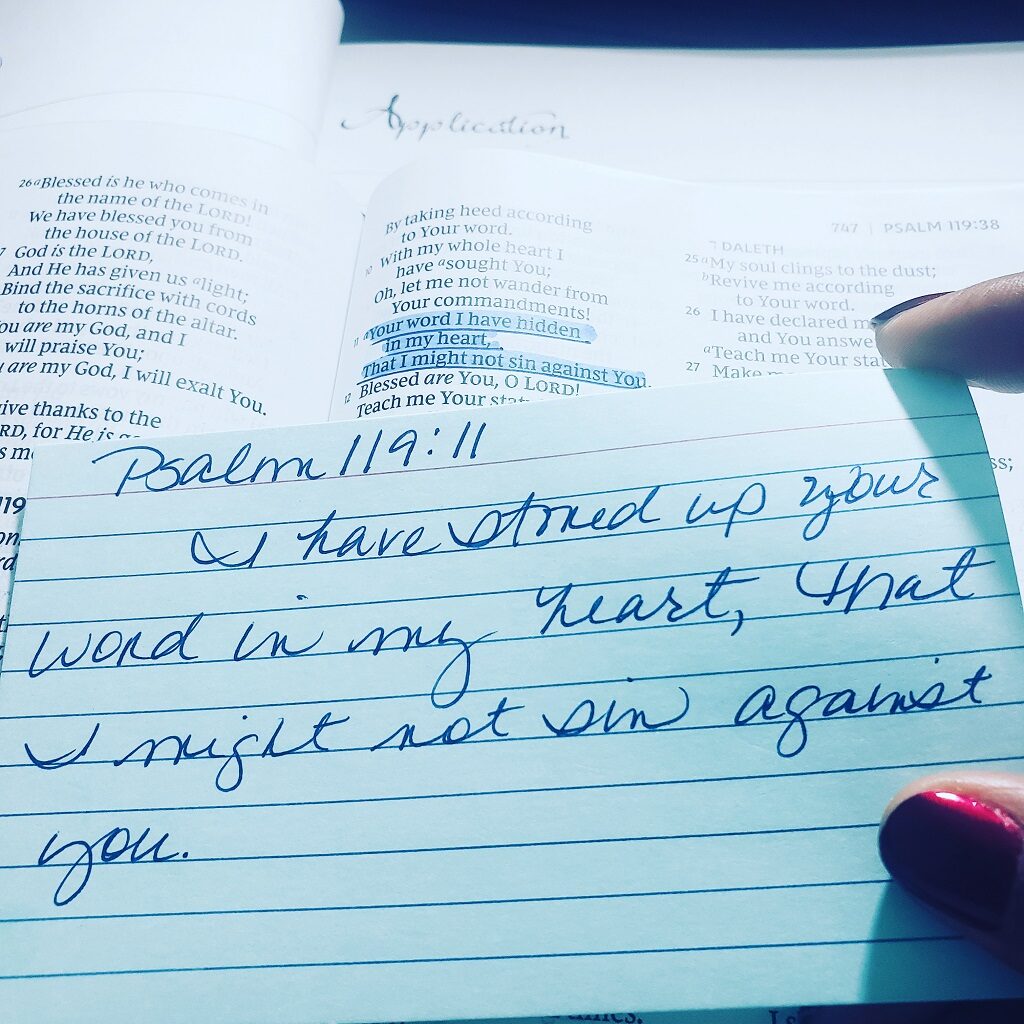 Application
26 aBlessed is he who comes in
the name of the LORD!
We have blessed you from
the house of the LORD.
God is the LORD,
And He has given us alight;
Bind the sacrifice with cords
to the horns of the altar.
are my God, and I
will praise You;
are my God, I will exalt You.
give thanks to the
for He is
By taking heed according
to Your word.
10 With my whole heart I
have asought You;
Oh, let me not wander from
Your commandments!
11 aYour word I have hidden
in my heart,
That I might not sin against You.
12 Blessed are You, O LORD!
Teach me Your
747 | PSALM 119:38
ד DALETH
25 aMy soul clings to the dust;
bRevive me according
to Your word.
26 I have declared
and You
aTeach me Your
27 Make
Psalm 119:11
I have stored up your
word in my heart, that
I might not sin against
you.